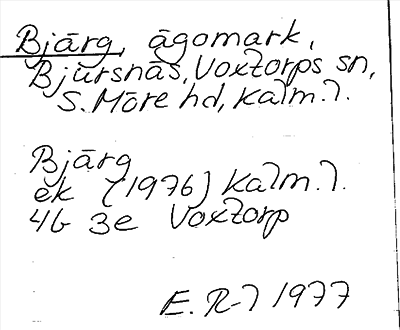 Bjärg, ägomark,
Bjursnäs, Voxtorps sn,
S. Möre hd, Kalm. l.
Bjärg
ek (1976) Kalm. l.
4G 3e Voxtorp
E. R-l 1977